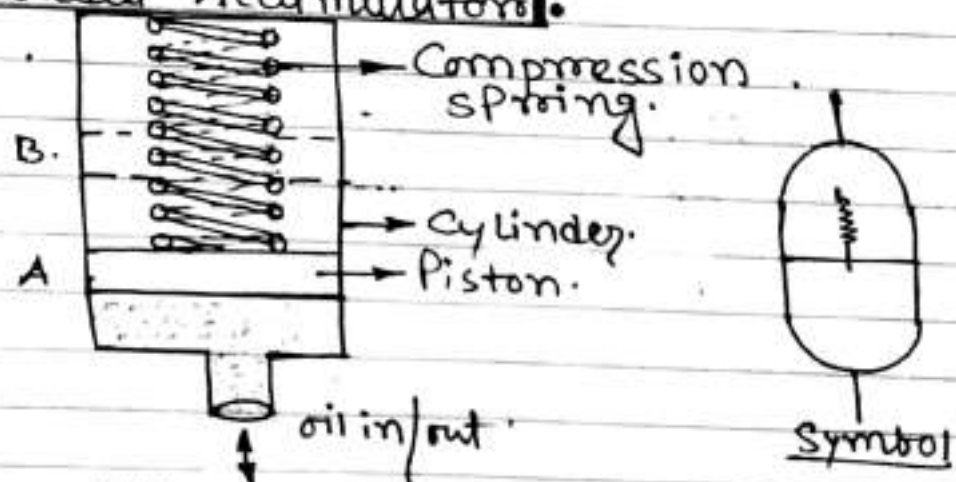 Compression
spring.
B.
Cylinder.
A
Piston.
oil in/out
Symbol